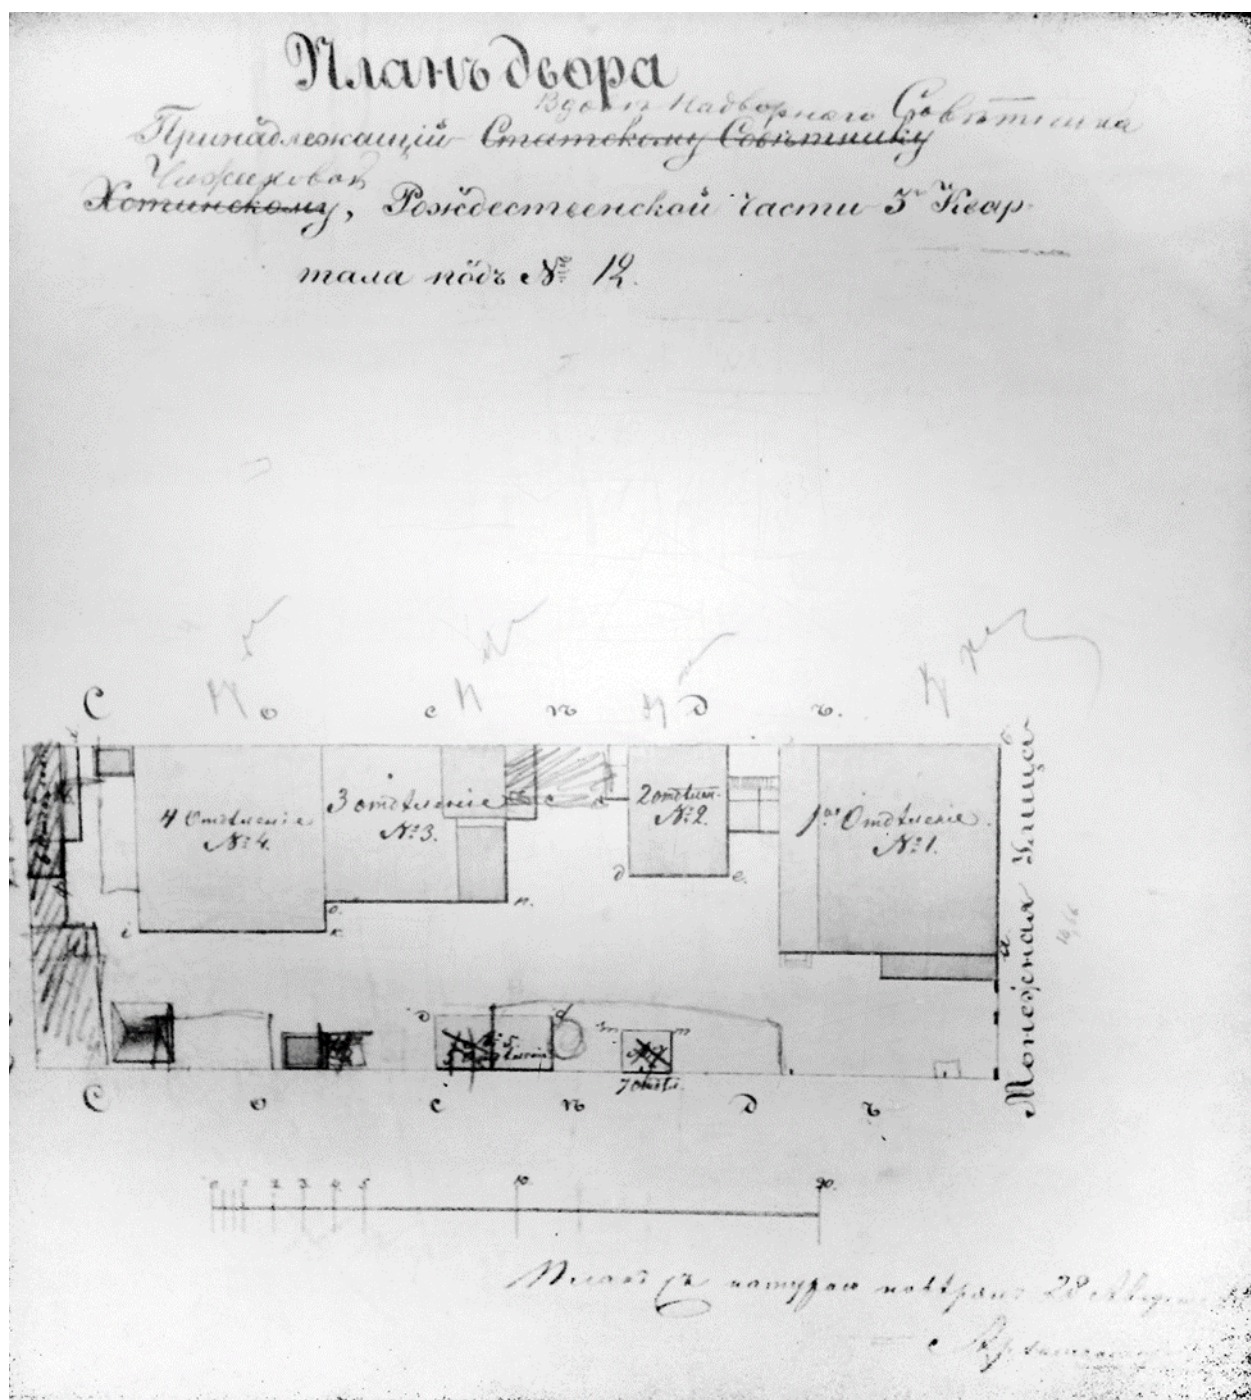 Планъ двора
Вдовѣ Надворнаго Совѣтника
Принадлежащій Статскому Совѣтнику
Хотинскому, Рождественской части 3 Квар-
тала подъ № 12.
С о с ѣ д ъ.
4 Отдѣленіе
№ 4.
3 отдѣленіе
№ 3.
2 отдѣлен.
№ 2.
1ое Отдѣленіе.
№ 1.
д е.
о. н.
і к
№ 5.
m m
7 отдѣ.
С о с ѣ д ъ
1 2 3 4 5 10. 20.
Планъ съ натурою повѣрялъ 28